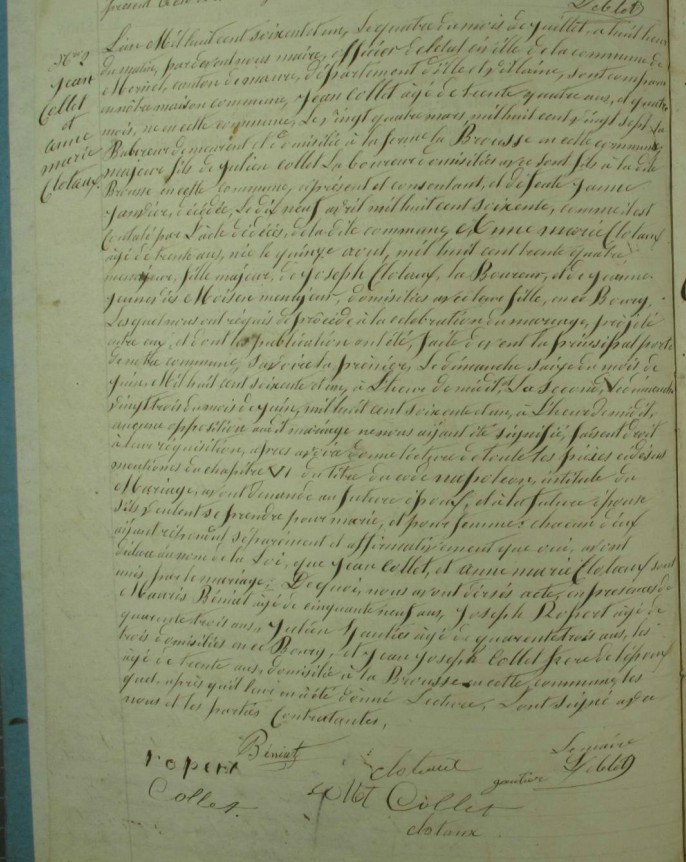 present
Leblet
N° 2
Jean
Collet
et
anne
marie
Clolaux
L'an Mil huit cent soixante et un, Le quatre du mois de Juillet, a huit heur
du matin, par devant nous maire, officier de l'état civille de la commune de
Mernel, canton de maure, département d'ille et vilaine, sont comparu
en nôtre maison commune, Jean Collet âgé de trente quatre ans, et quatre
mois, né en cette commune, Le vingt quatre mars, mil huit cent vingt sept, La
Baboureur demeurent et domicilié à la ferme la Brousse en cette commune,
majeur fils de Julien Collet La boureur domiciliés avec sont fils à la dite
Brousse en cette commune, ci présent et consentant, et défeute Janne
Jandière, décédée, Le dix neuf avril mil huit cent soixente, comme il est
Constaté par L'acte de décés, de la dite commune, et Anne marie Clolaux
âgé de trente ans, née le quinze aout, mil huit cent trente quatre,
menajere, fille majeur, de Joseph Clolaux, La Boureur, et de Jeanne
Jeanne dès Moison menajere, domiciliés avec leur fille, en ce Bourg,
Lesquel nous ont réquis de procédé à la célébration du mariage, projété
entre eux, et dont les publication ont été, faite devent la principal porte
de notre commune, Savoire la première, Le dimanche seize du mois de
Juin Mil huit cent soixente et un, à L'heure de midit, La second, Le dimanche
vingt trois du mois de Juin, mil huit cent soixente et un, à L'heure de midit,
aucune opposition audit mariage ne nous aÿant été signifié, faisent droit
à leur réquisition, apres avoire donné lecture de toute les pièces ci dessus
mentionés du chapitre VI du titre du code napoleon, intitulé du
Mariage, avont demandé au future épouf, et à la future épouse
s'ils veulent se prendre pour marie, et pour femme: chacun d'eux
aÿant répondut séparement et affirmativement que oui, avont
déclaré au nom de la Loi, que Jean Collet, et anne marie Clolaux sont
unis par le mariage; De quoi, nous avont dressés acte, en presences de
Mauris Béniat âgé de cinquante neuf ans, Joseph Roport âgé de
quarente trois ans, Julien Gautier âgé de quarente trois ans, les
trois domiciliés en ce Bourg, et Jean Joseph Collet frere de l'épouf
âgé de trente ans, domicilié à la Brousse en cette commune, les
quel, après qu'il leur en à été donné Lecture, Sont signé avec
nous et les parties Contratantes,
Béniat
Le maire
ropert
clolaux
Leblet
gautier
Collet
Collet
clolaux